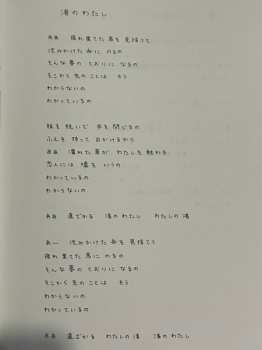 渚のわたし
ああ 疲れ果てた馬を見捨てて
沈みかけた舟に のるの
そんな夢の とおりに なるの
そこから先のことは もう
わからないの
わかっているの
靴を脱いで 目を閉じるの
ふえを 持って 出かけるから
ああ 濡れた
恋人には 嘘を いうの
わかっているの
わからないの
ああ 遠ざかる 渚のわたし わたしの渚
あー 沈みかけた舟を見捨てて
疲れ果てた馬に のるの
そんな夢の とおりに なるの
そこから先のことは もう
わからないの
わかっているの
ああ 遠ざかる わたしの渚 渚のわたし